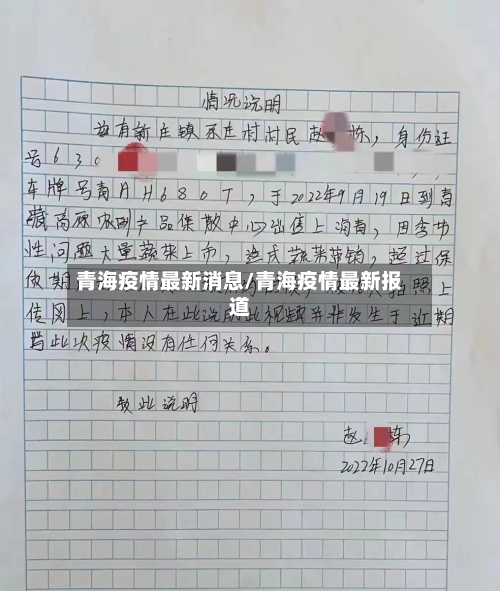 情况说明
兹有新庄镇下庄村村民赵 栋，身份证
号630
车牌号青AH680T，于2022年9月19日到青
藏高原农副产品集散中心出售上海青，因季节
性问题大量蔬菜上市，造成蔬菜滞销，超过保
质期
青海疫情最新消息/青海疫情最新报
道
拍照上
传网上，本人在此说明此视频并非发生于近期
与此次疫情没有任何关系。
特此说明
赵 栋
2022年10月27日